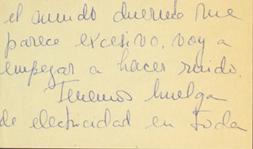 el mundo duerma me
parece excesivo, voy a
empezar a hacer ruido.
Tenemos huelga
de electricidad en toda